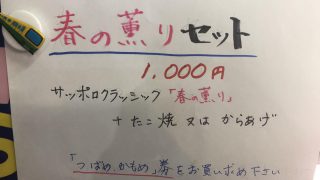 春の薫りセット
1,000円
サッポロクラッシック「春の薫り」
＋たこ焼 又は からあげ
「つばめ、かもめ」券をお買い求め下さい